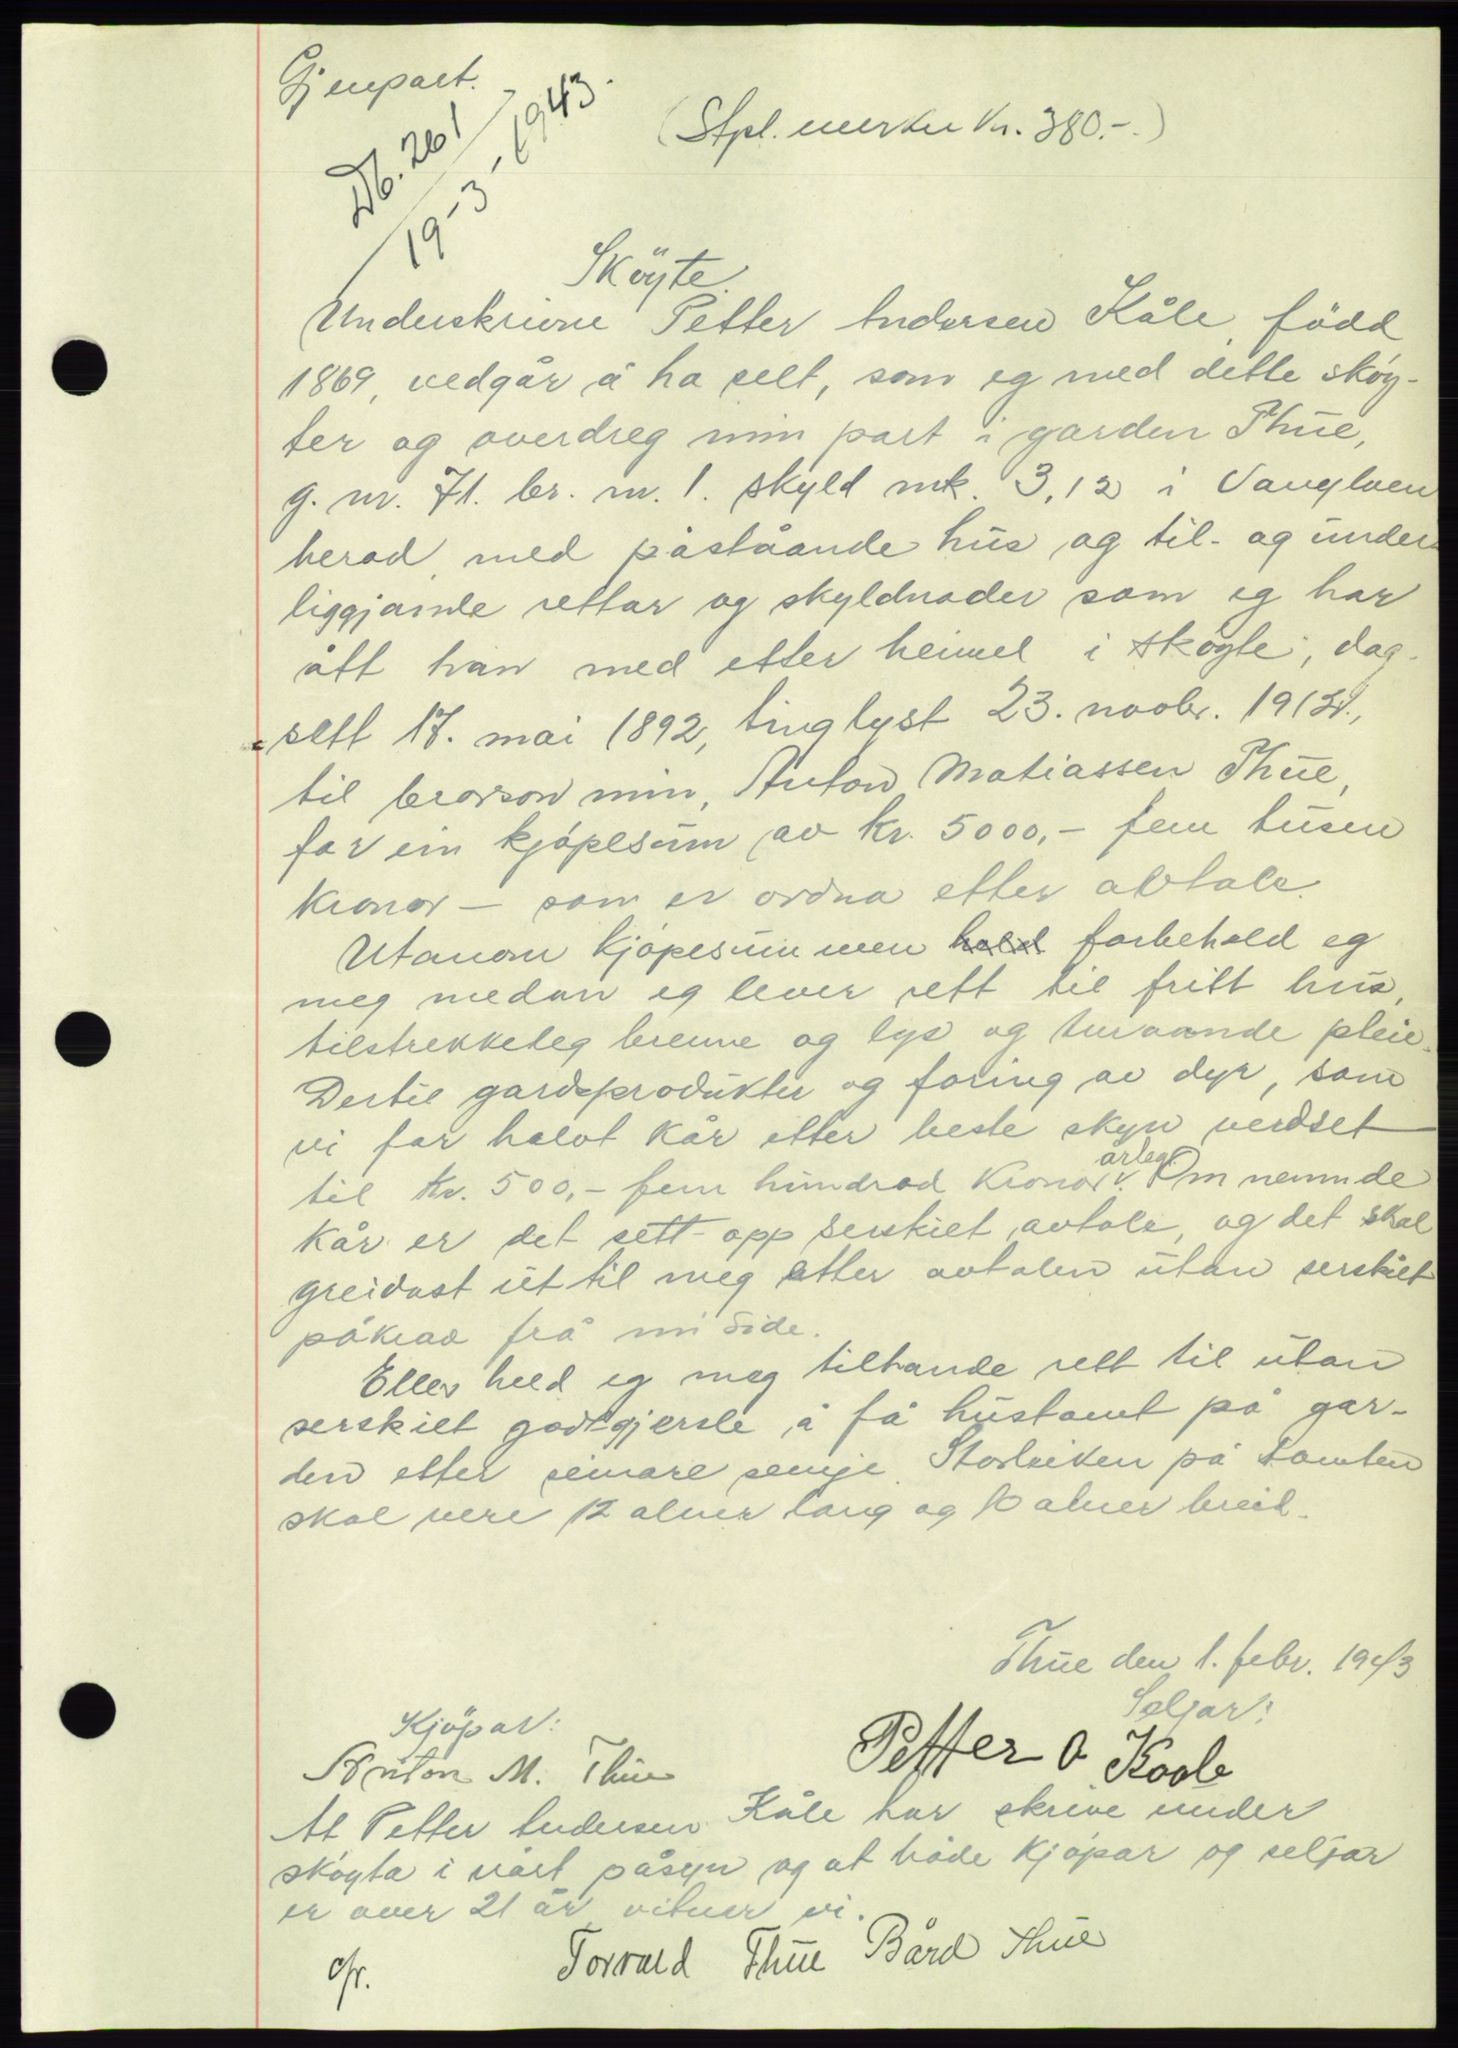 Gjenpart.
Db. 261
19-3-1943.
(Stpl. merker kr. 380.-.)
Sköyte.
Underskrivne Petter Andersen Kåle, född
1869, vedgår å ha selt, som eg med dette sköy-
ter og overdreg min part i garden Thue,
g. nr. 71. br. nr. 1. skyld mk. 3,12 i Vanylven
herad, med påståande hus og til- og under-
liggjande rettar og skyldnader som eg har
ått han med etter heimel i sköyte, dag-
sett 17. mai 1892, tinglyst 23. novbr.
til brorson min, Anton Matiassen Thue,
for ein kjöpesum av kr. 5000,- fem tusen
kronor - som er ordna etter avtale.
Utanom kjöpesummen forbeheld eg
meg medan eg lever rett til fritt hus,
tilstrekkeleg brenne og lys og turvande pleie.
Dertil gardsprodukter og foring av dyr, som
vi for halvt kår etter beste skyn verdset
til kr. 500,- fem hundrad kronor årleg. Om nemnde
kår er det sett opp serskilt avtale, og det skal
greidast ut til meg etter avtalen utan serskilt
påkrav frå mi side.
Elles held eg meg tilhande rett til utan
serskilt godtgjersle å få hustomt på gar-
den etter seinare semje. Storleiken på tomten
skal vere 12 alner lang og 10 alner breid.
Thue den 1. febr. 1943
Seljar:
Kjöpar:
Petter A Koole
Anton M. Thue
At Petter Andersen Kåle har skrive under
sköyta i vårt påsyn og at både kjöpar og seljar
er over 21 år vitner vi.
Torvald Thue Bård Thue